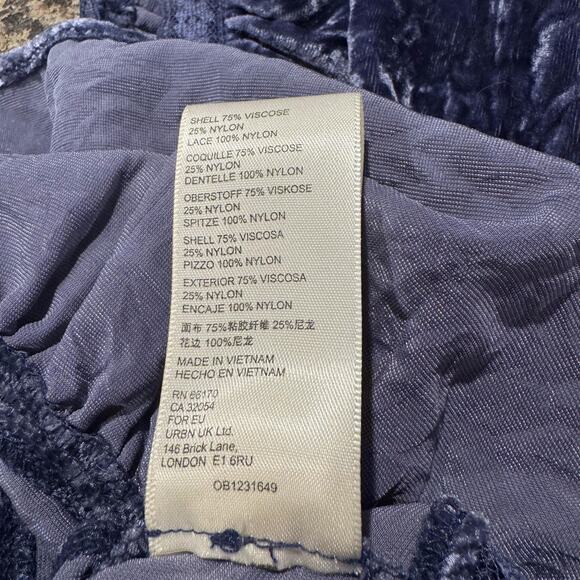 SHELL 75% VISCOSE
25% NYLON
LACE 100% NYLON
COQUILLE 75% VISCOSE
25% NYLON
DENTELLE 100% NYLON
OBERSTOFF 75% VISKOSE
25% NYLON
SPITZE 100% NYLON
SHELL 75% VISCOSA
25% NYLON
PIZZO 100% NYLON
EXTERIOR 75% VISCOSA
25% NYLON
ENCAJE 100% NYLON
面布 75%粘胶纤维 25%尼龙
花边 100%尼龙
MADE IN VIETNAM
HECHO EN VIETNAM
RN 66170
CA 32054
FOR EU
URBN UK Ltd.
146 Brick Lane,
LONDON E1 6RU
OB1231649